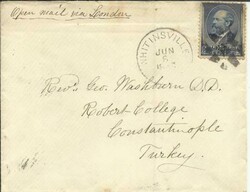 Open mail via London
WHITINSVILLE
JUN
5
Rev'd Geo. Washburn D.D.
Robert College
Constantinople
Turkey.